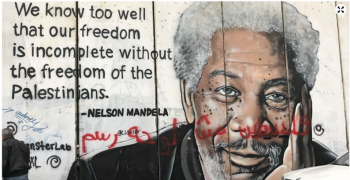 We know too well
that our freedom
is incomplete without
the freedom of the
Palestinians.
-NELSON MANDELA
فلسطين مش لوحة رسم